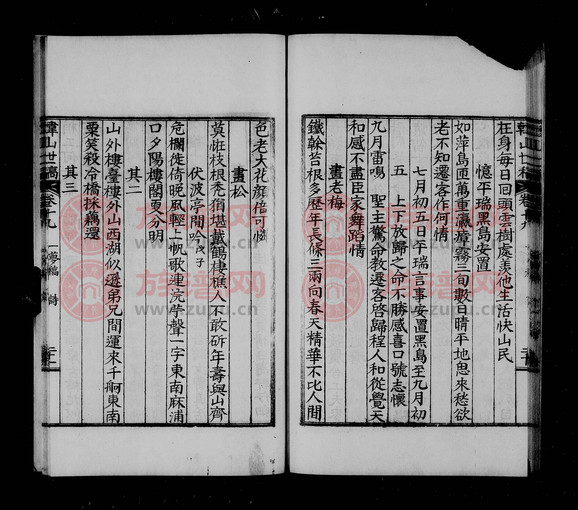 在身每日回頭雲樹處羨他生活快山民
憶平瑞黑島安置
如萍島匝萬重瀛瘴霧三旬數日晴平地思來愁欲
老不知遷客作何情
七月初五日平瑞言事安置黑島至九月初
五 上下放歸之命不勝感喜口號志懷
九月雷鳴 聖主驚命教遷客啓歸程人和從覺天
和感不盡臣家舞蹈情
畫老梅
鐵幹苔根多歷年長條三兩向春天精華不比人間
色老大花顏倍可憐
畫松
莫誑枝根禿猶堪戴鶴棲樵人不敢斫年壽與山齊
伏波亭閒吟戊子
危欄徙倚晚風輕上帆歌連浣芧聲一字東南麻浦
口夕陽樓閣更分明
其二
山外樓臺樓外山西湖似遜弟兄間運來千舸東南
粟笑殺冷橋採藕還
其三
韓山世稿
卷十九
詩
韓山世稿
卷十九
族譜网